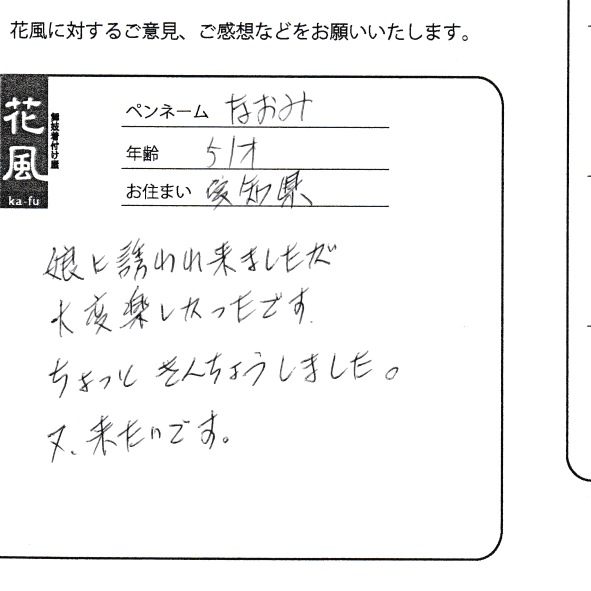 花風に対するご意見、ご感想などをお願いいたします。
花風
舞妓着付け屋
ka-fu
ペンネーム なおみ
年齢 51才
お住まい 愛知県
娘に誘われ来ましたが
大変楽しかったです.
ちょっと きんちょうしました。
又、来たいです。